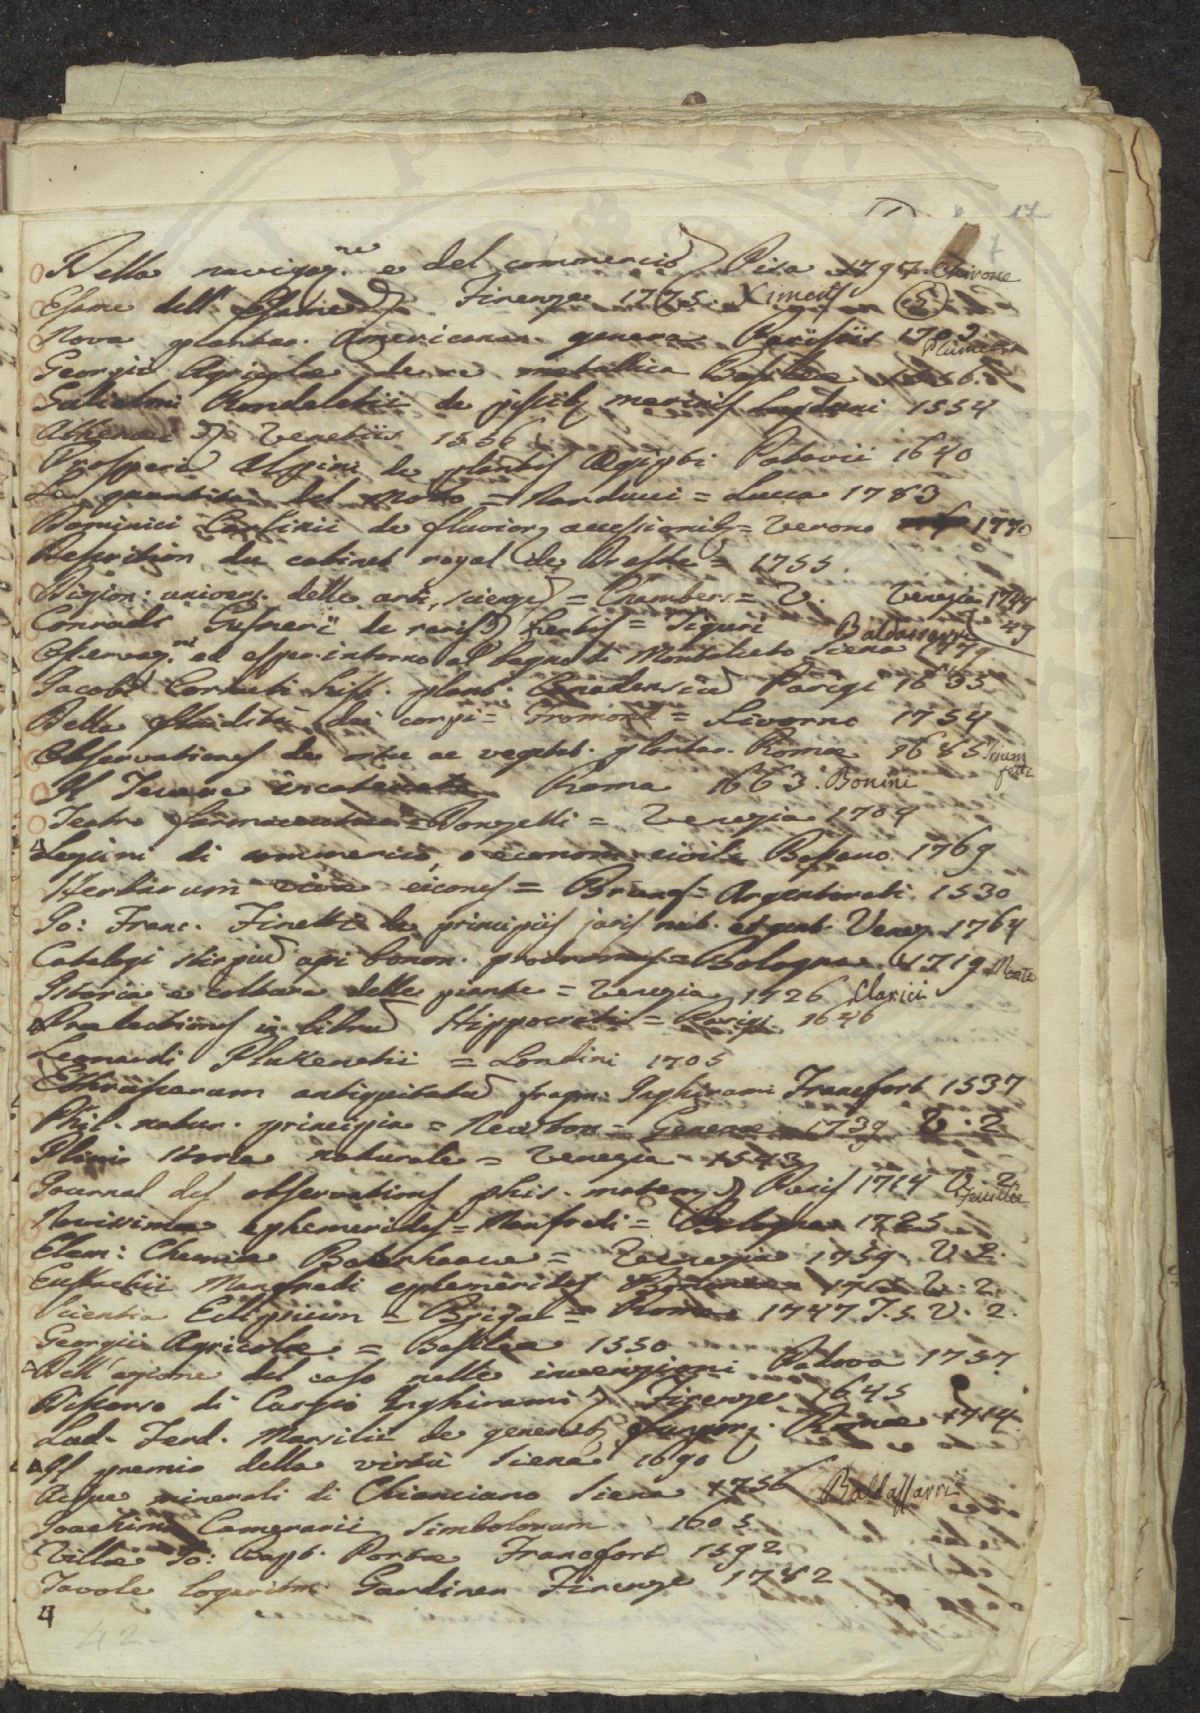 17
Della navigaz.ne e del commercio Pisa 1797 Chirone
Esame dell' Firenze 1775. Ximenes
Nova plantar. Americanar. genera Parisiis 1703. Plumier
Georgii Agricolae de re metallica Basileae
Gulielmi Rondeletii de piscib. marinis Lugduni 1554
Athenaei Venetiis 1556
Prosperi Alpini de plantis Aegipti Patavii 1640
La quantità del moto = Narducci = Lucca 1783
Dominici de fluvior. accessionib. = Verone 1770
Descrition du cabinet royal de Dresde = 1755.
Dizion: univers. delle arti, scienze = Chambers = V. Venezia 1749
Conradi Gesneri de raris herbis = Tiguri
Osservaz.ni ed esper. intorno al bagno di Montalceto Siena 1779 Baldassarri
Jacobi Cornuti hist. plant. Canadensiu Parigi 1635
Della fluidità dei corpi = Fromond = Livorno 1754
Observationes de ortu ac vegetat. plantar. Romae 1685 Trium fetti
Il Tevere incatenato Roma 1663. Bonini
Teatro farmaceutico = Donzelli = Venezia 1704
Lezioni di commercio, o econom. civile Bassano 1769
Herbarum vivae eicones = Brunf = Argentorati 1530
Jo: Franc. Finetti de principiis juris nat. et gent. Venez. 1764
Catalogi stirpiu agri bonon. prodromus = Bologna 1719 Monte
Istoria e coltura delle piante = Venezia 1726 Clarici
Praelectiones in libru Hippocratis = Parigi 1646
Leonardi Plukenetii = Londini 1705
Ethruscarum antiquitatu fragm. Inghirami Francfort 1537
Phil. natur. principia = Newthon = Genevae 1739 V. 2
Plinio storia naturale = Venezia 1543
Journal des observations phis. matem. Paris 1714 V. 2 Feuillée
Novissimae ephemerides = Manfredi = Bologna 1725
Elem: Chemiae Boherhaave = Venezia 1759 V. 2.
Eustachii Manfredi ephemerides V. 2.
Scientia Eclipsium = Roma 1747 T. s. V. 2.
Georgii Agricolae = Basilea 1550
Dell'azione del caso nelle invenzioni Padova 1757
Discorso di Curzio Inghirami Firenze 1645
Lud. Ferd. Marsilii de generat. fungor. Romae 1714
Il premio della virtù Siena 1690
Acque minerali di Chianciano Siena 1756 Baldassarri
Joachimi Camerarii Simbolorum 1605
Villae Jo: Bapt. Portae Francofort 1592
Tavole logaritm. Gardiner Firenze 1782
42